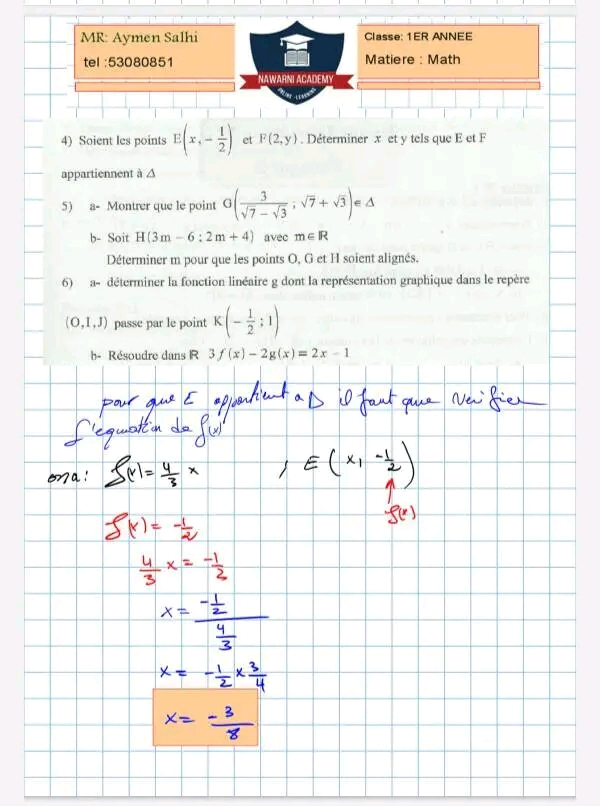 MR: Aymen Salhi
tel :53080851
NAWARNI ACADEMY
ONLINE - LEARNING
Classe: 1ER ANNEE
Matiere : Math
4) Soient les points E(x, -1/2) et F(2,y). Déterminer x et y tels que E et F
appartiennent à Δ
5) a- Montrer que le point G(3/(√7 - √3) ; √7 + √3) ∈ Δ
b- Soit H(3m - 6 ; 2m + 4) avec m ∈ ℝ
Déterminer m pour que les points O, G et H soient alignés.
6) a- déterminer la fonction linéaire g dont la représentation graphique dans le repère
(O,I,J) passe par le point K(-1/2 ; 1)
b- Résoudre dans ℝ 3f(x) - 2g(x) = 2x - 1
pour que E appartient a Δ il faut que verifier
l'equation de f(x)
on a: f(x) = 4/3 x ; E(x, -1/2)
f(x)
f(x) = -1/2
4/3 x = -1/2
x = (-1/2)/(4/3)
x = -1/2 × 3/4
x = -3/8